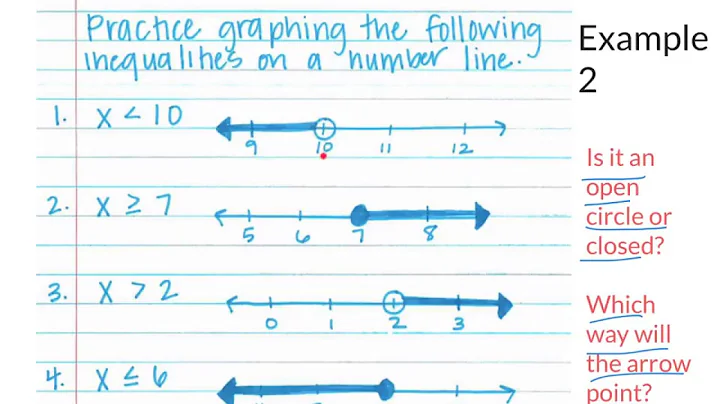 Practice graphing the following
inequalities on a number line.
1. x < 10
9 10 11 12
2. x ≥ 7
5 6 7 8
3. x > 2
0 1 2 3
4. x ≤ 6
Example
2
Is it an
open
circle or
closed?
Which
way will
the arrow
point?